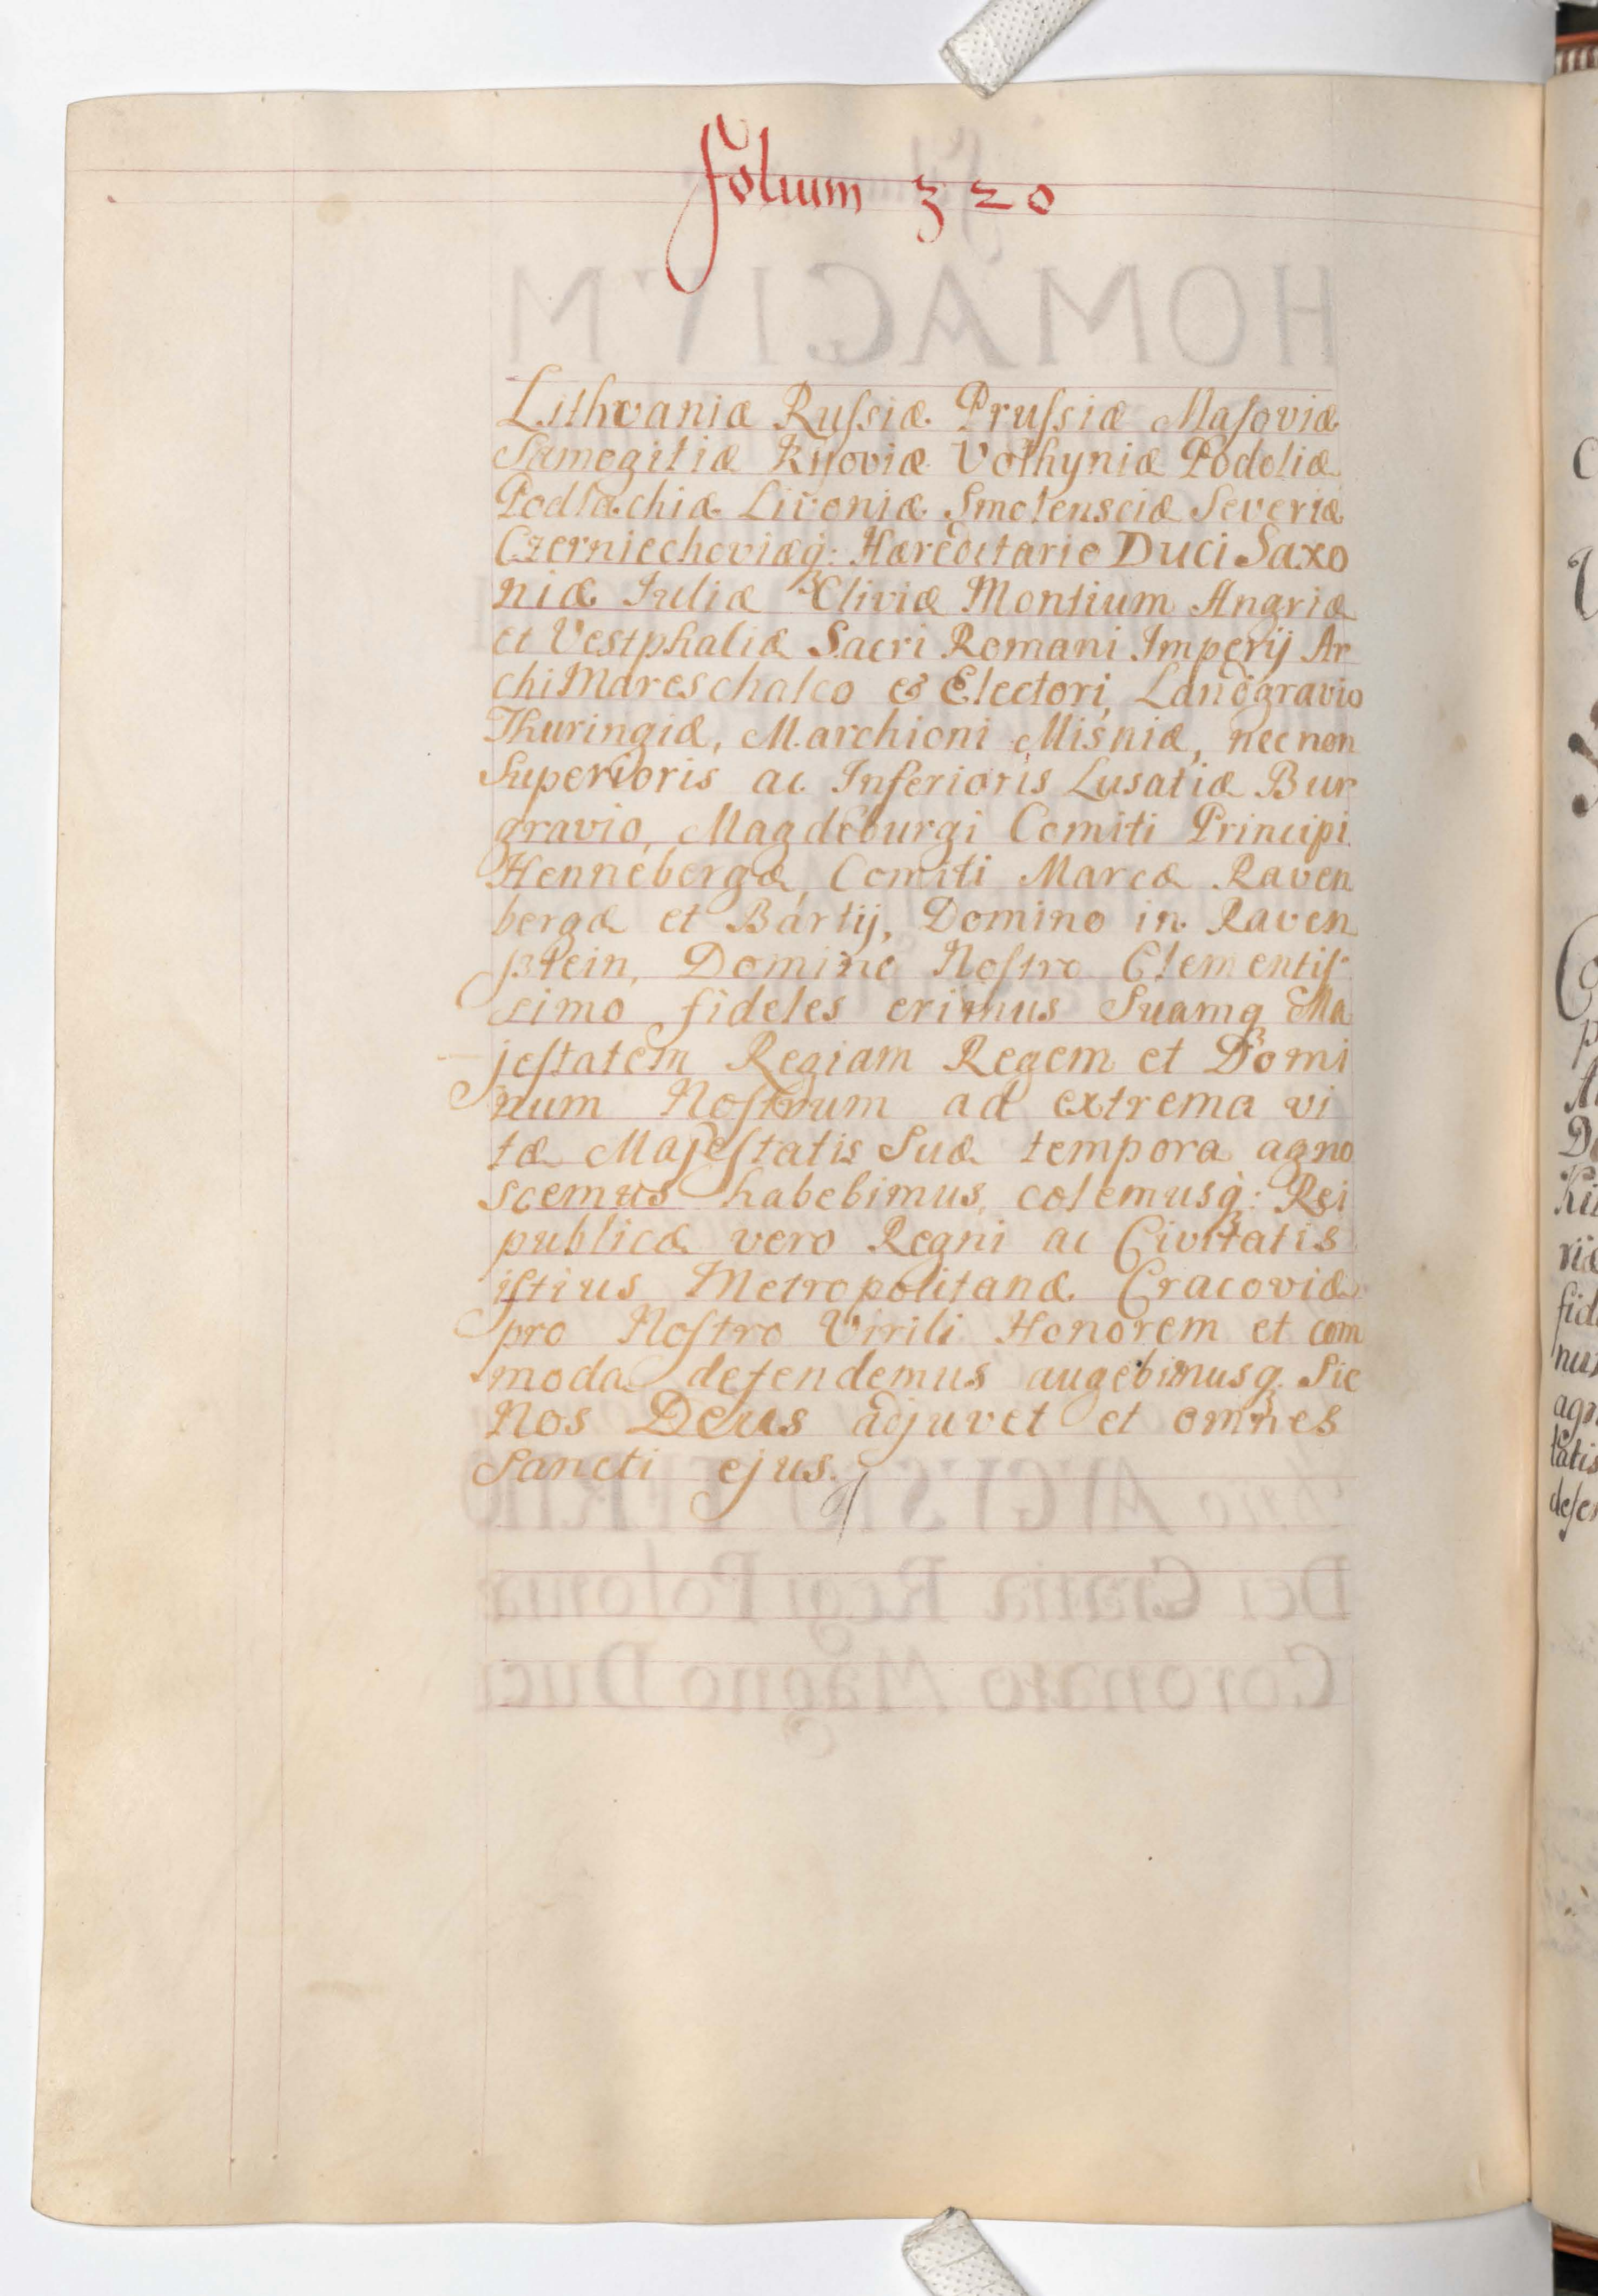 folium 320
Lithvaniæ Rußiæ Prußiæ Masoviæ
Samogitiæ Kijoviæ Volhyniæ Podoliæ
Podlachiæ Livoniæ Smolensciæ Severiæ
Czerniechoviæq: Hæreditario Duci Saxo
niæ Iuliæ Cliviæ Montium Angriæ
et Vestphaliæ Sacri Romani Imperij Ar
chiMareschalco & Electori, Landgravio
Thuringiæ, Marchioni Misniæ, nec non
Superioris ac Inferioris Lusatiæ Bur
gravio, Magdeburgi Comiti Principi
Hennebergæ, Comiti Marcæ Raven
bergæ et Bartij, Domino in Raven
stein, Domino Nostro Clementis
simo fideles erimus Suamq Ma
jestatem Regiam Regem et Domi
num Nostrum ad extrema vi
tæ Majestatis Suæ tempora agno
scemus habebimus, colemusq: Rei
publicæ vero Regni ac Civitatis
istius Metropolitanæ Cracoviæ
pro Nostro Virili Honorem et com
moda defendemus augebimusq. Sic
Nos Deus adjuvet et omnes
Sancti ejus.